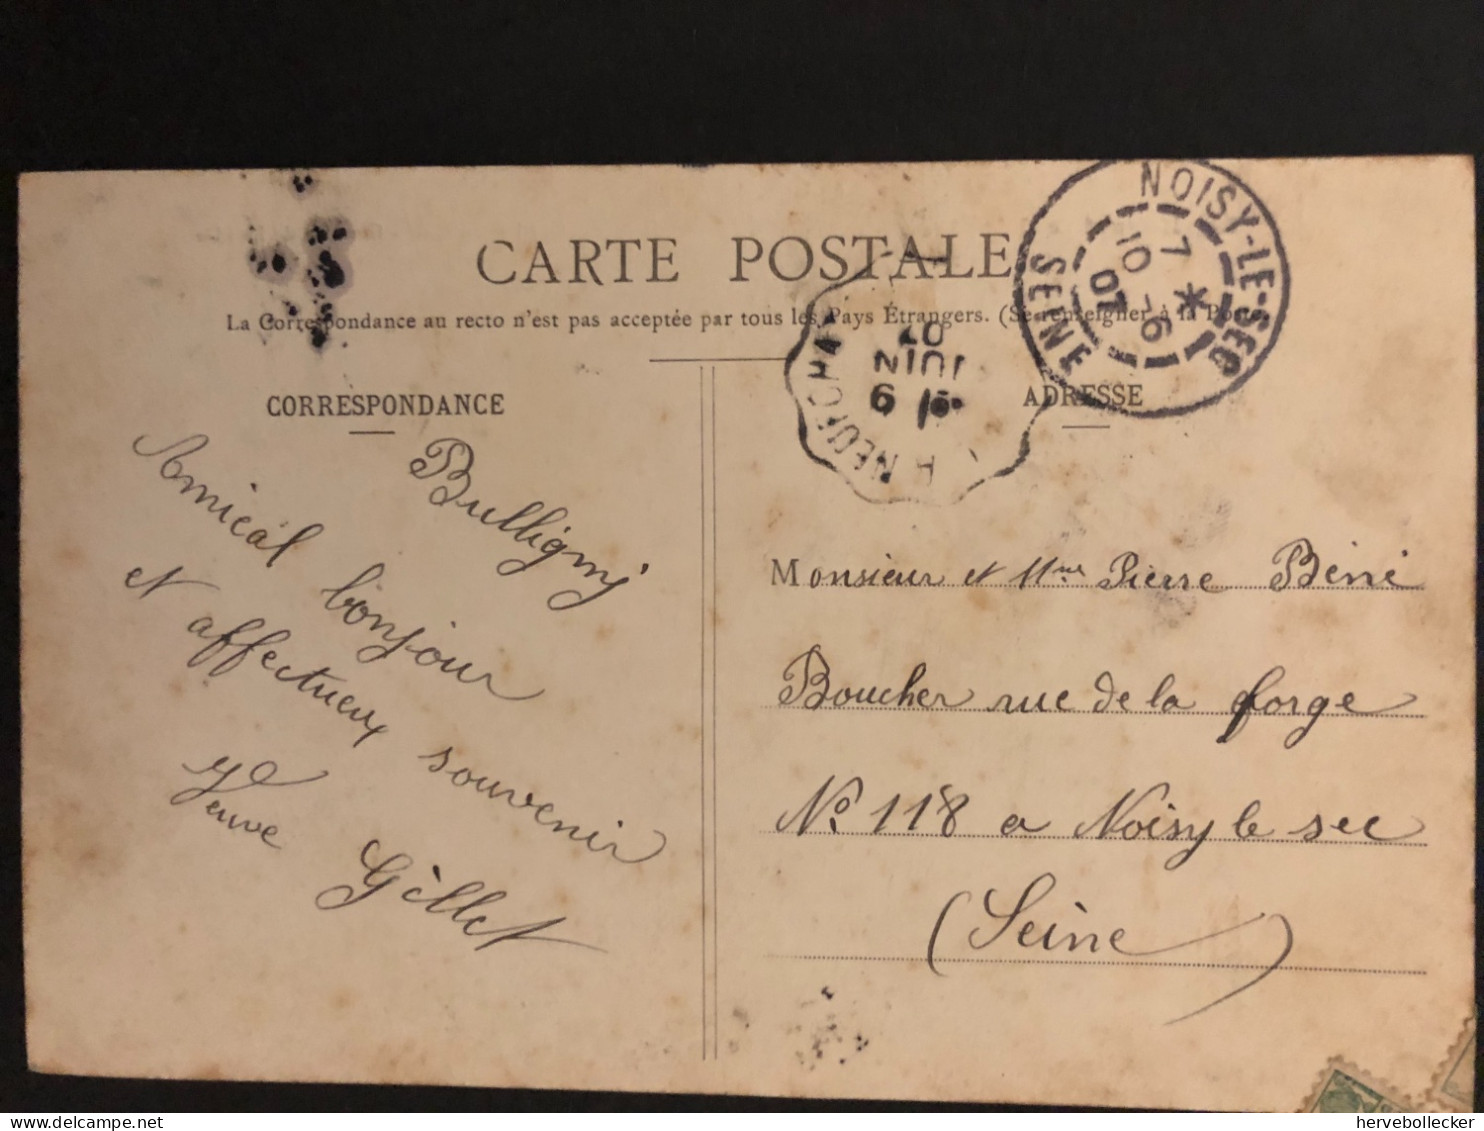 CARTE POSTALE
La Correspondance au recto n'est pas acceptée par tous les Pays Étrangers. (Se renseigner à la Poste)
CORRESPONDANCE
Bulligny
Amical bonjour
et affectueux souvenir
Veuve Gillet
NOISY-LE-SEC
7 *
10 -6
07
SEINE
A NEUFCHA
6
JUIN
07
ADRESSE
Monsieur et Mme Pierre
Boucher rue de la forge
No. 118 a Noisy le sec
(Seine)
hervebollecker